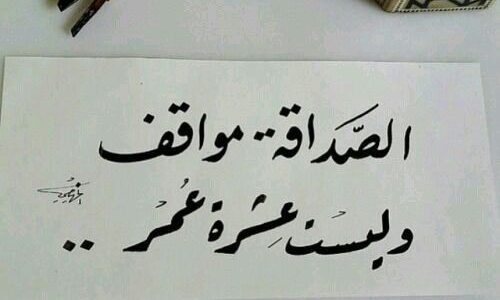 الصَّداقة.. مواقف
وليست عِشرة عُمرْ ..